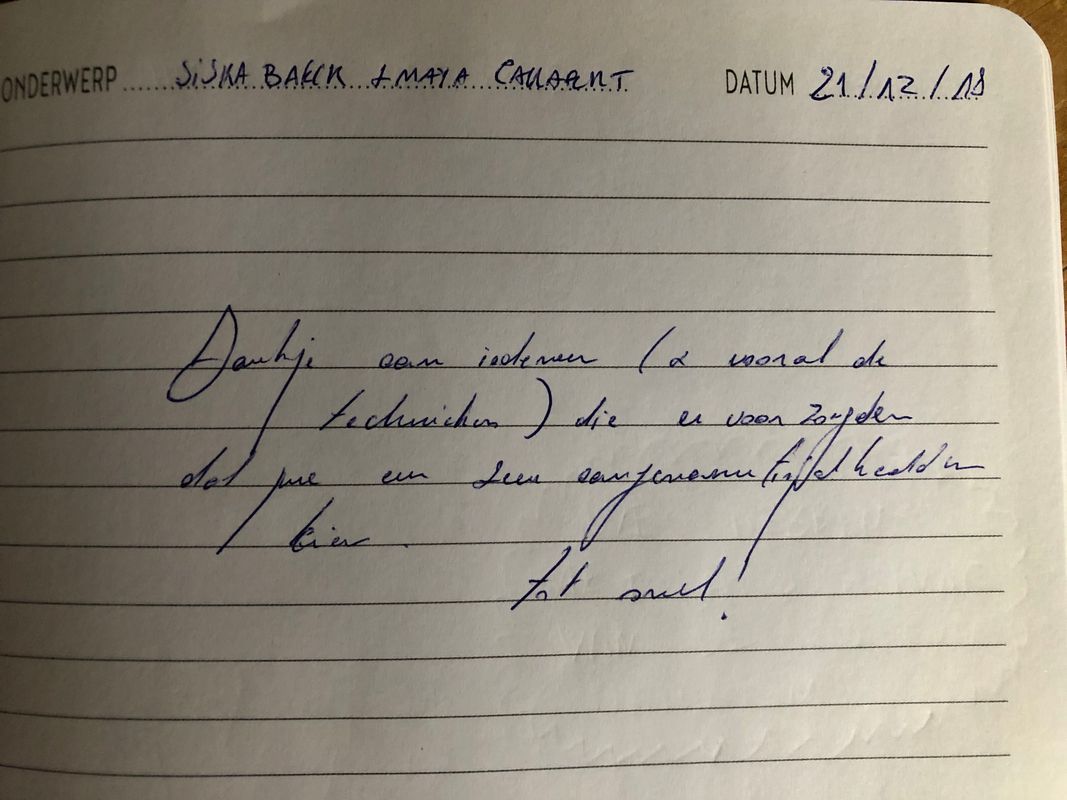 ONDERWERP SiSKA BAECK + MAYA DATUM 21/12/18
Dankje aan iedereen (& vooral de
technieken) die er voor zorgden
dat we een zeer aangename tijd hadden
hier.
Tot snel!